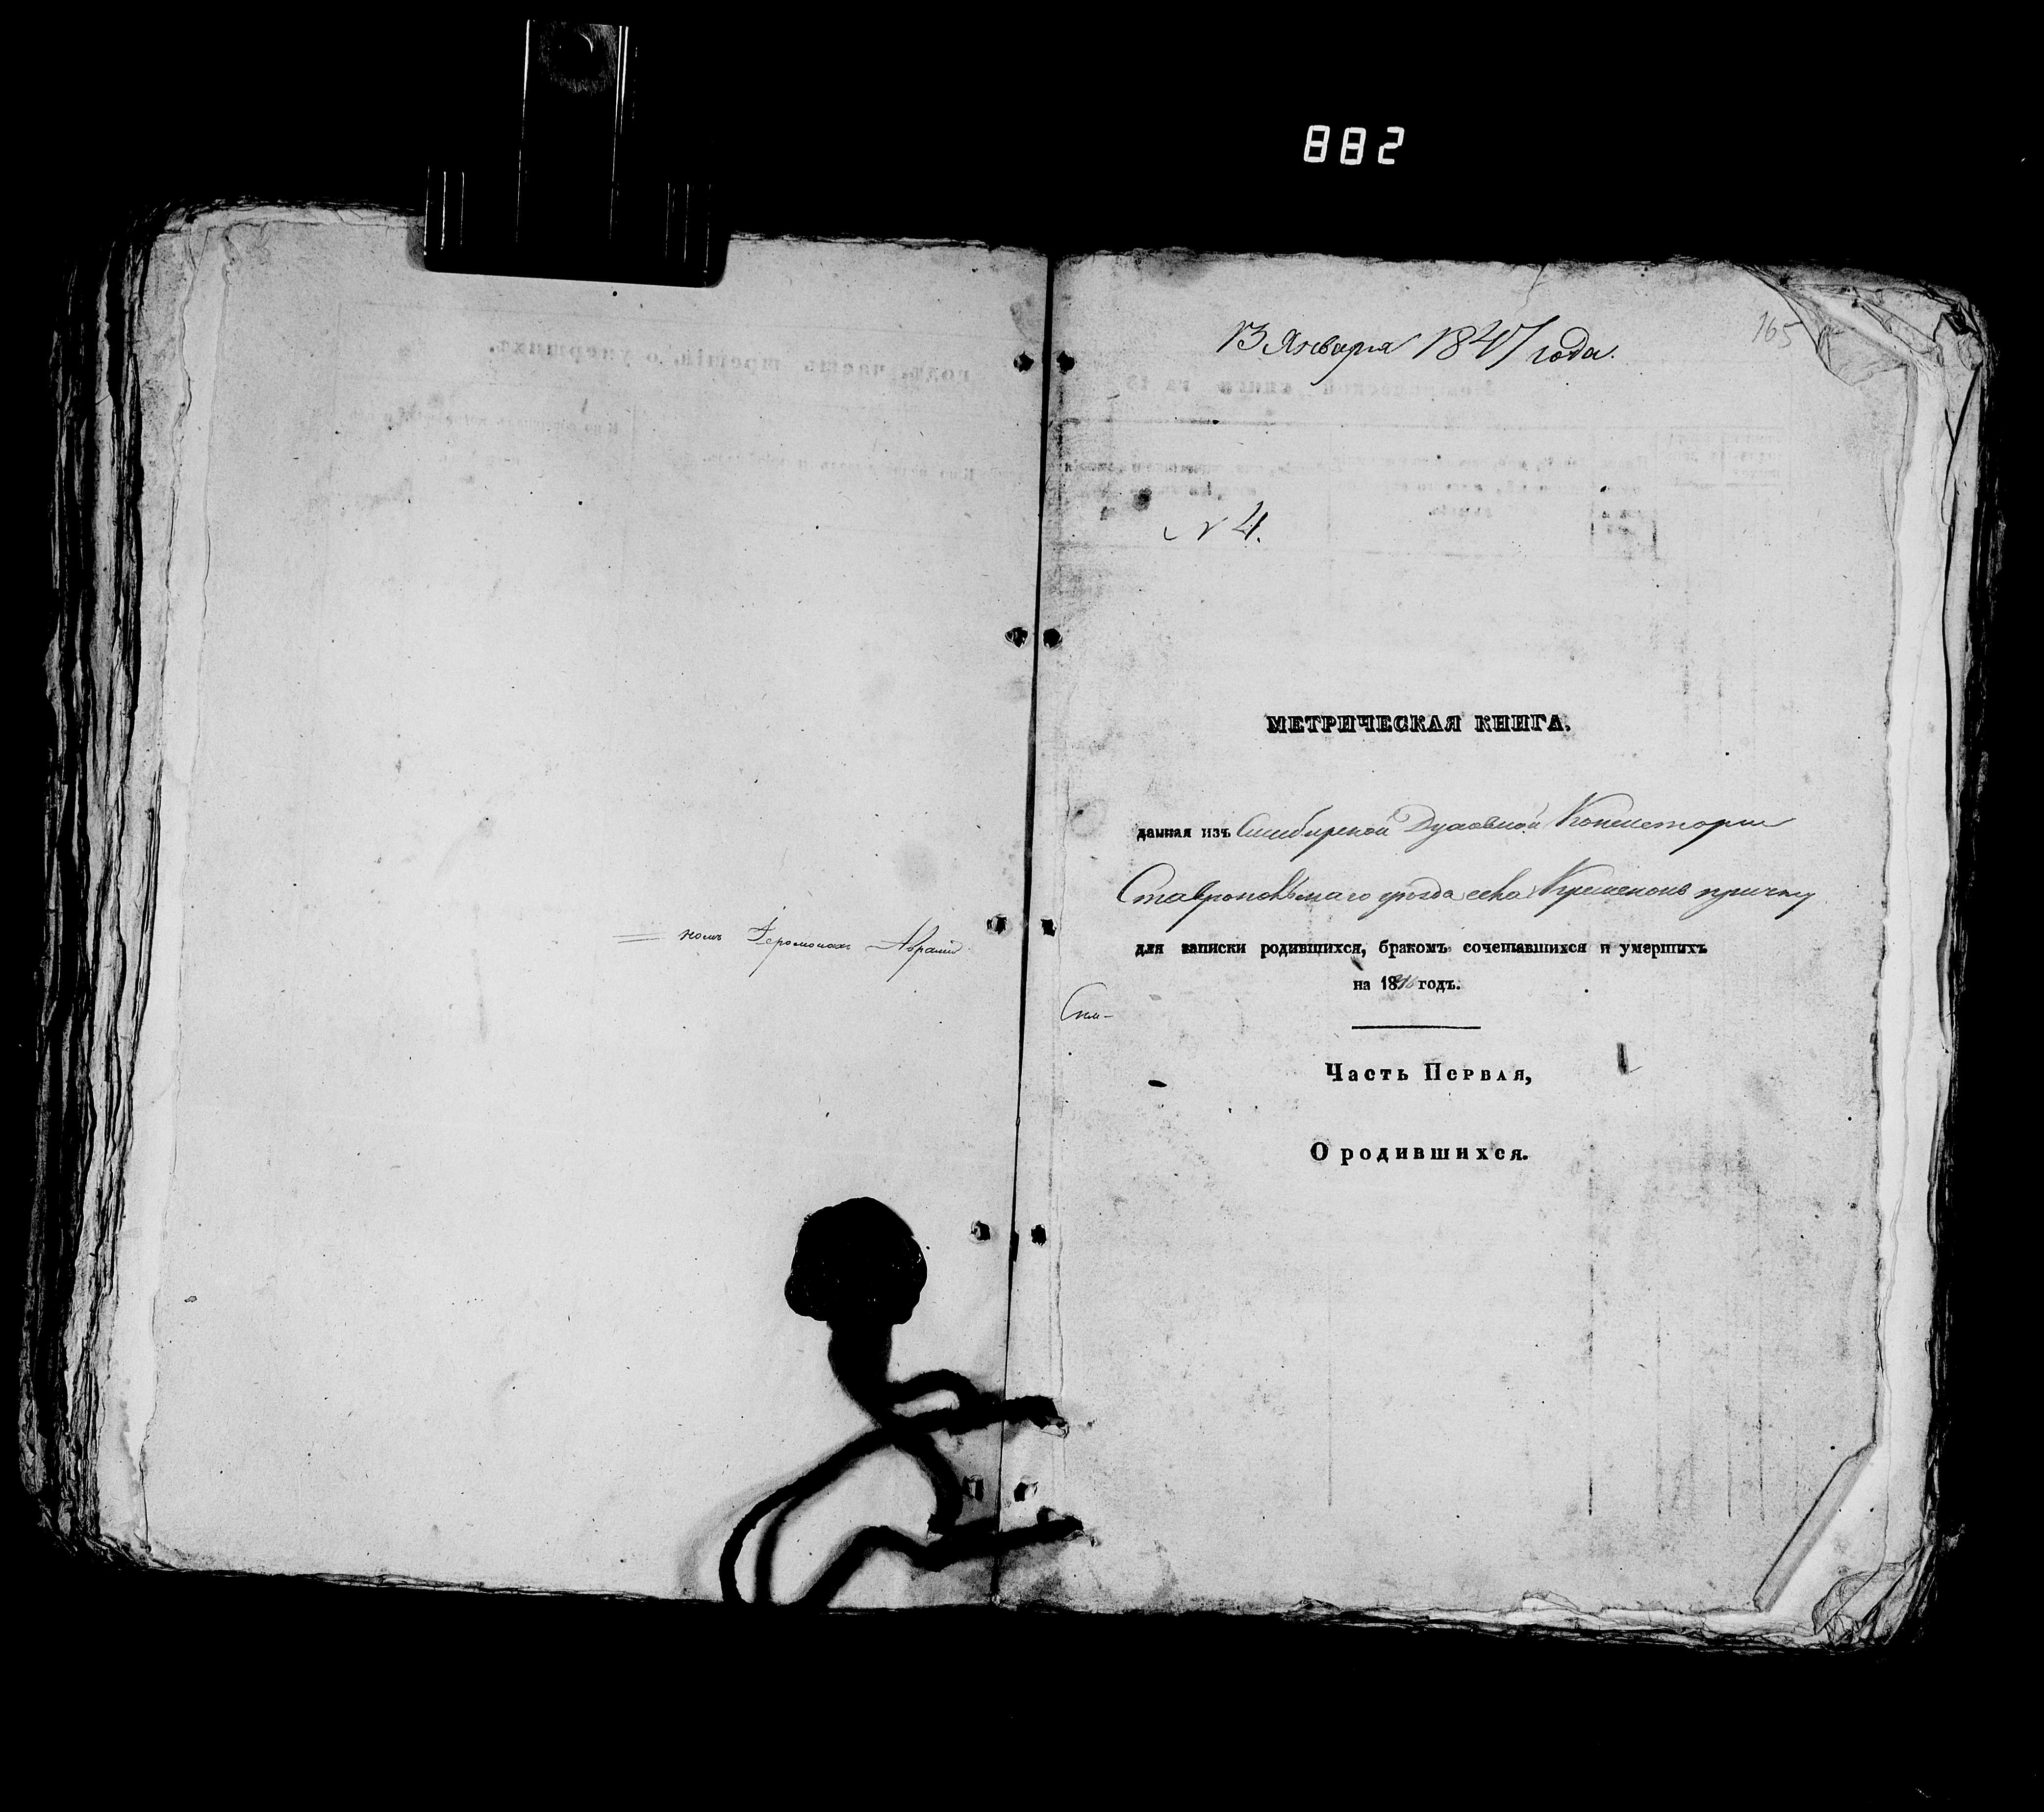 882
165
13 Января 1847 года.
N 4.
МЕТРИЧЕСКАЯ КНИГА,
данная изъ Симбирской Духовной Консисторіи
Ставропольскаго уѣзда села Кременокъ причту
для записки родившихся, бракомъ сочетавшихся и умершихъ
на 1846 годъ.
Часть Первая,
О родившихся.
комъ Іеромонахъ